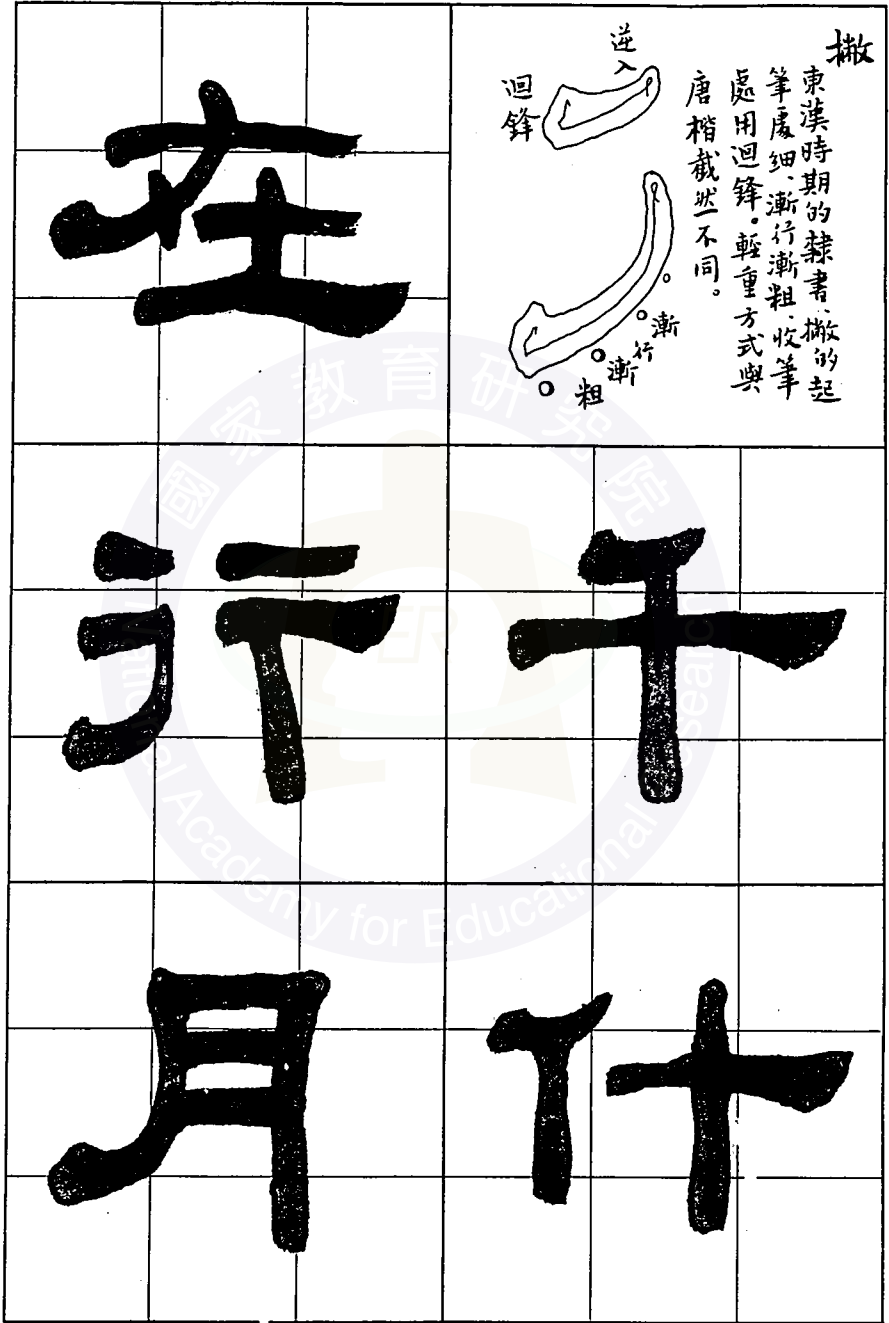 撇
東漢時期的隸書、撇的起
筆處細、漸行漸粗、收筆
處用迴鋒。輕重方式與
唐楷截然不同。
逆入
迴鋒
漸行漸粗
千
什
在
行
月
國家教育研究院
National Academy for Educational Research